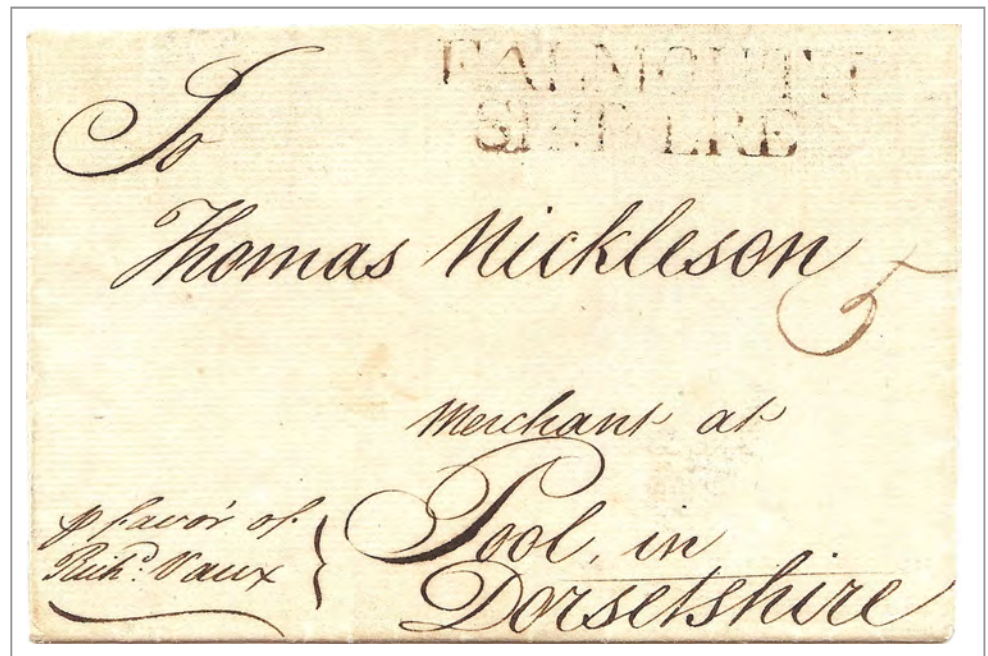 FALMOUTH
SHIP LRE
To
Thomas Nickleson
5
Merchant at
Pool, in
Dorsetshire
p favor of
Richd. Vaux